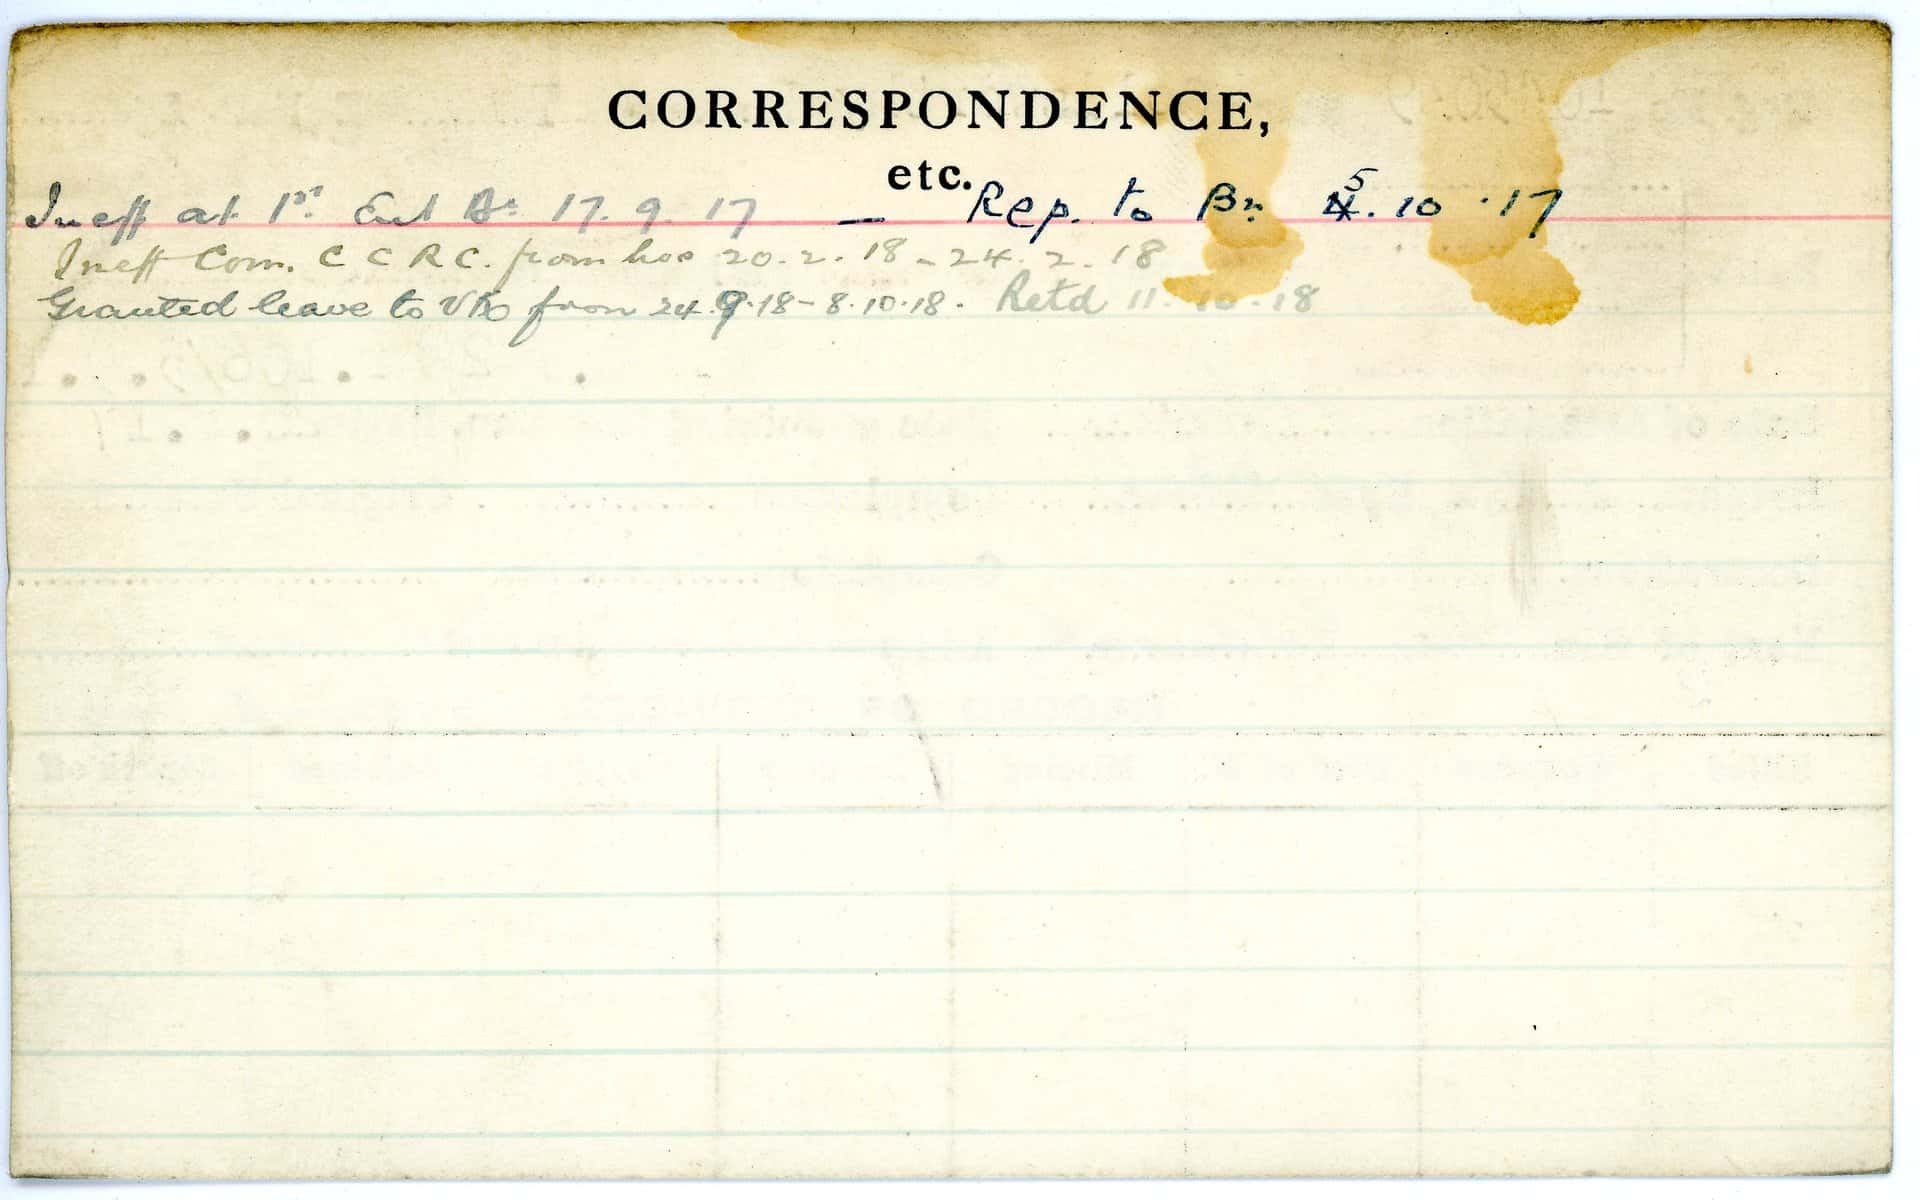 CORRESPONDENCE,
etc.
Ineff at 1st Ent Bn 17.9.17 — Rep. to Bn 5.10.17
Ineff Com. C C R C. from hos 20.2.18 - 24.2.18
Granted leave to UK from 24.9.18 - 8.10.18. Retd 11.10.18